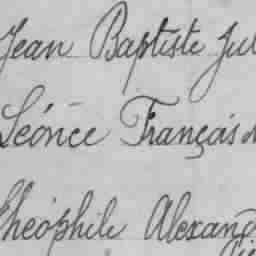 Jean Baptiste Jul
Léonce François
Théophile Alexand